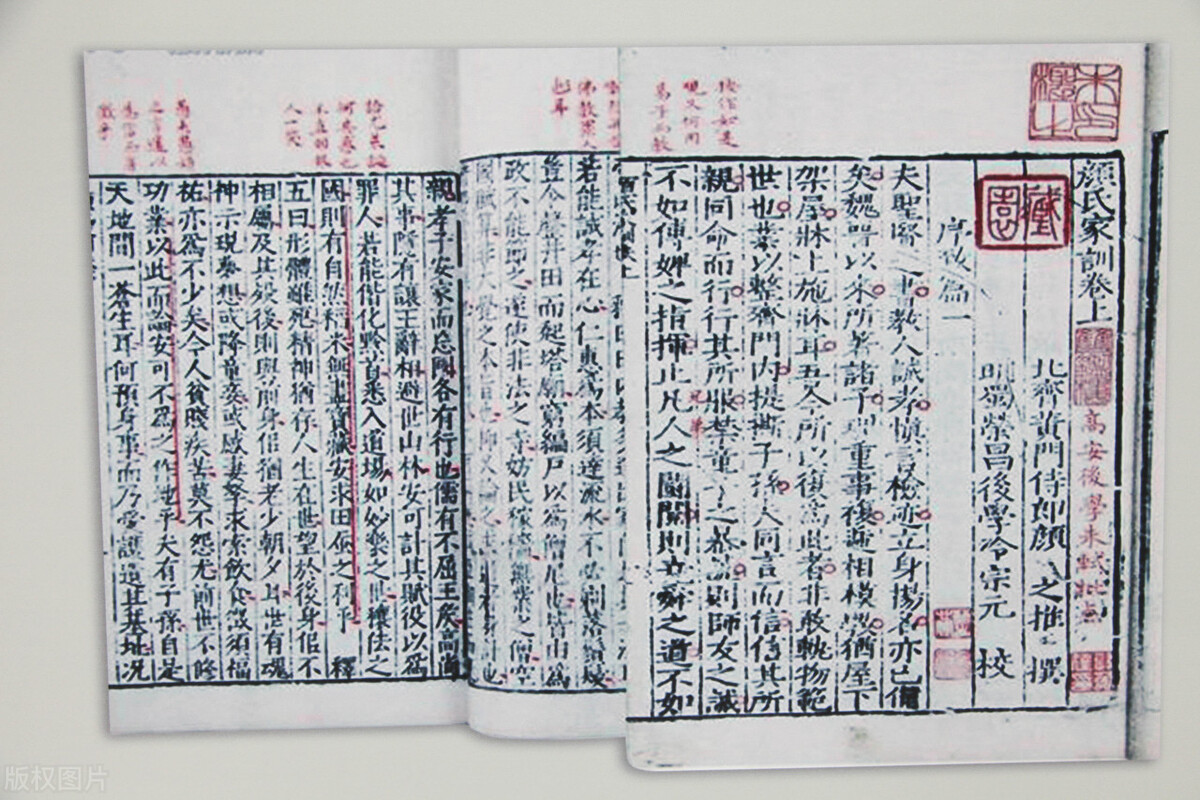 顏氏家訓卷上
高安後學朱軾批點
北齊黃門侍郎顏之推 撰
明蜀榮昌後學冷宗元 校
序致篇一
夫聖賢之書教人誠孝慎言檢迹立身揚名亦已備
矣魏晉以來所著諸子理重事複遞相模斆猶屋下
架屋牀上施牀耳吾今所以復爲此者非敢軌物範
世也業以整齊門內提撕子孫夫同言而信信其所
親同命而行行其所服禁童子之暴謔則師友之誡
不如傅婢之指揮止凡人之鬭鬩則堯舜之道不如
兄弟
若能誠孝在心仁惠爲本須達流水不必剃落鬚髮
豈令罄井田而起塔廟窮編戶以爲僧尼也皆由爲
政不能節之遂使非法之寺妨民稼穡無業之僧空
國賦筭非大覺之本旨也抑又論之
親孝子安家而忘國各有行也儒有不屈王侯高尚
其事隱有讓王辭相避世山林安可計其賦役以爲
罪人若能偕化黔首悉入道場如妙樂之世禳佉之
國則有自然稻米無盡寶藏安求田蠶之利乎 釋
五曰形體雖死精神猶存人生在世望於後身似不
相屬及其歿後則與前身似猶老少朝夕耳世有魂
神示現夢想或降童妾或感妻孥求索飲食徵須福
祐亦爲不少矣今人貧賤疾苦莫不怨尤前世不修
功業以此而論安可不爲之作地乎夫有子孫自是
天地間一蒼生耳何預身事而乃愛護遺其基址況
版权图片